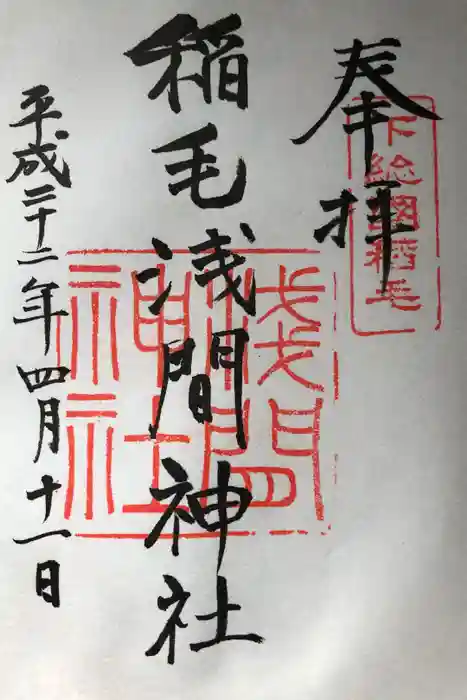 奉拝
下総國稲毛
稲毛浅間神社
浅間神社
平成二十二年四月十一日